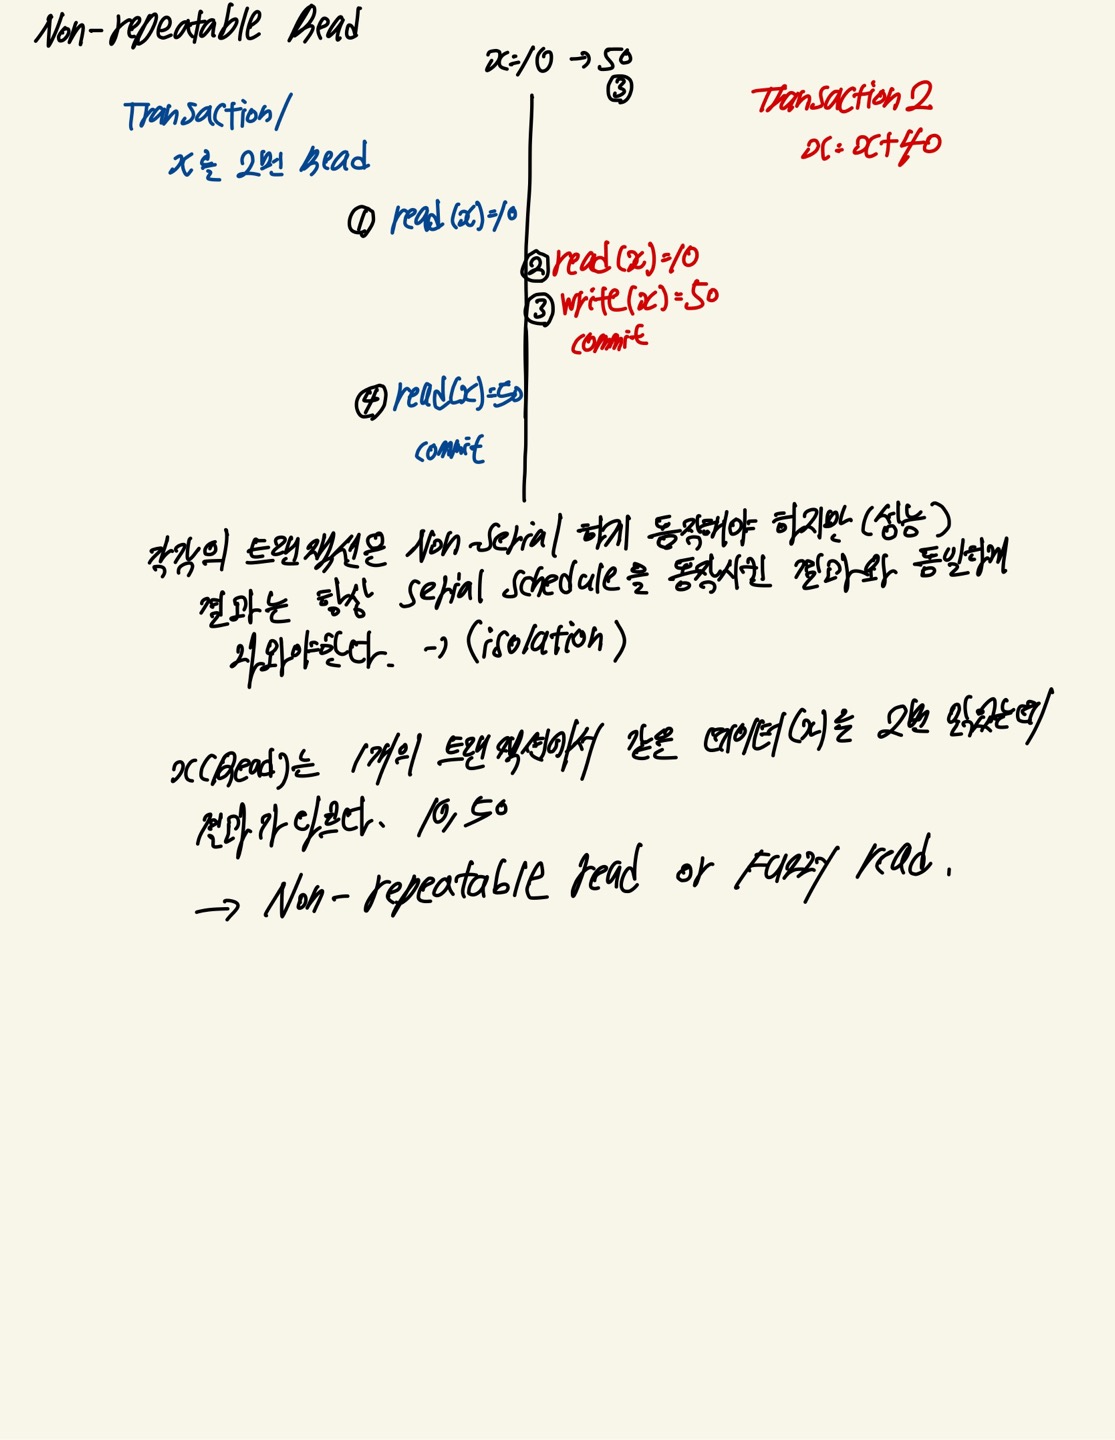 Non-repeatable Read
x=10 → 50
③
Transaction1
x를 2번 Read
Transaction 2
x=x+40
① read(x)=10
② read(x)=10
③ write(x)=50
commit
④ read(x)=50
commit
각각의 트랜잭션은 Non-Serial 하게 동작해야 하지만 (성능)
결과는 항상 serial schedule을 동작시킨 결과와 동일하게
나와야한다. → (isolation)
x(Read)는 1개의 트랜잭션에서 같은 데이터(x)를 2번 읽었는데
결과가 다르다. 10, 50
→ Non-repeatable read or Fuzzy read.